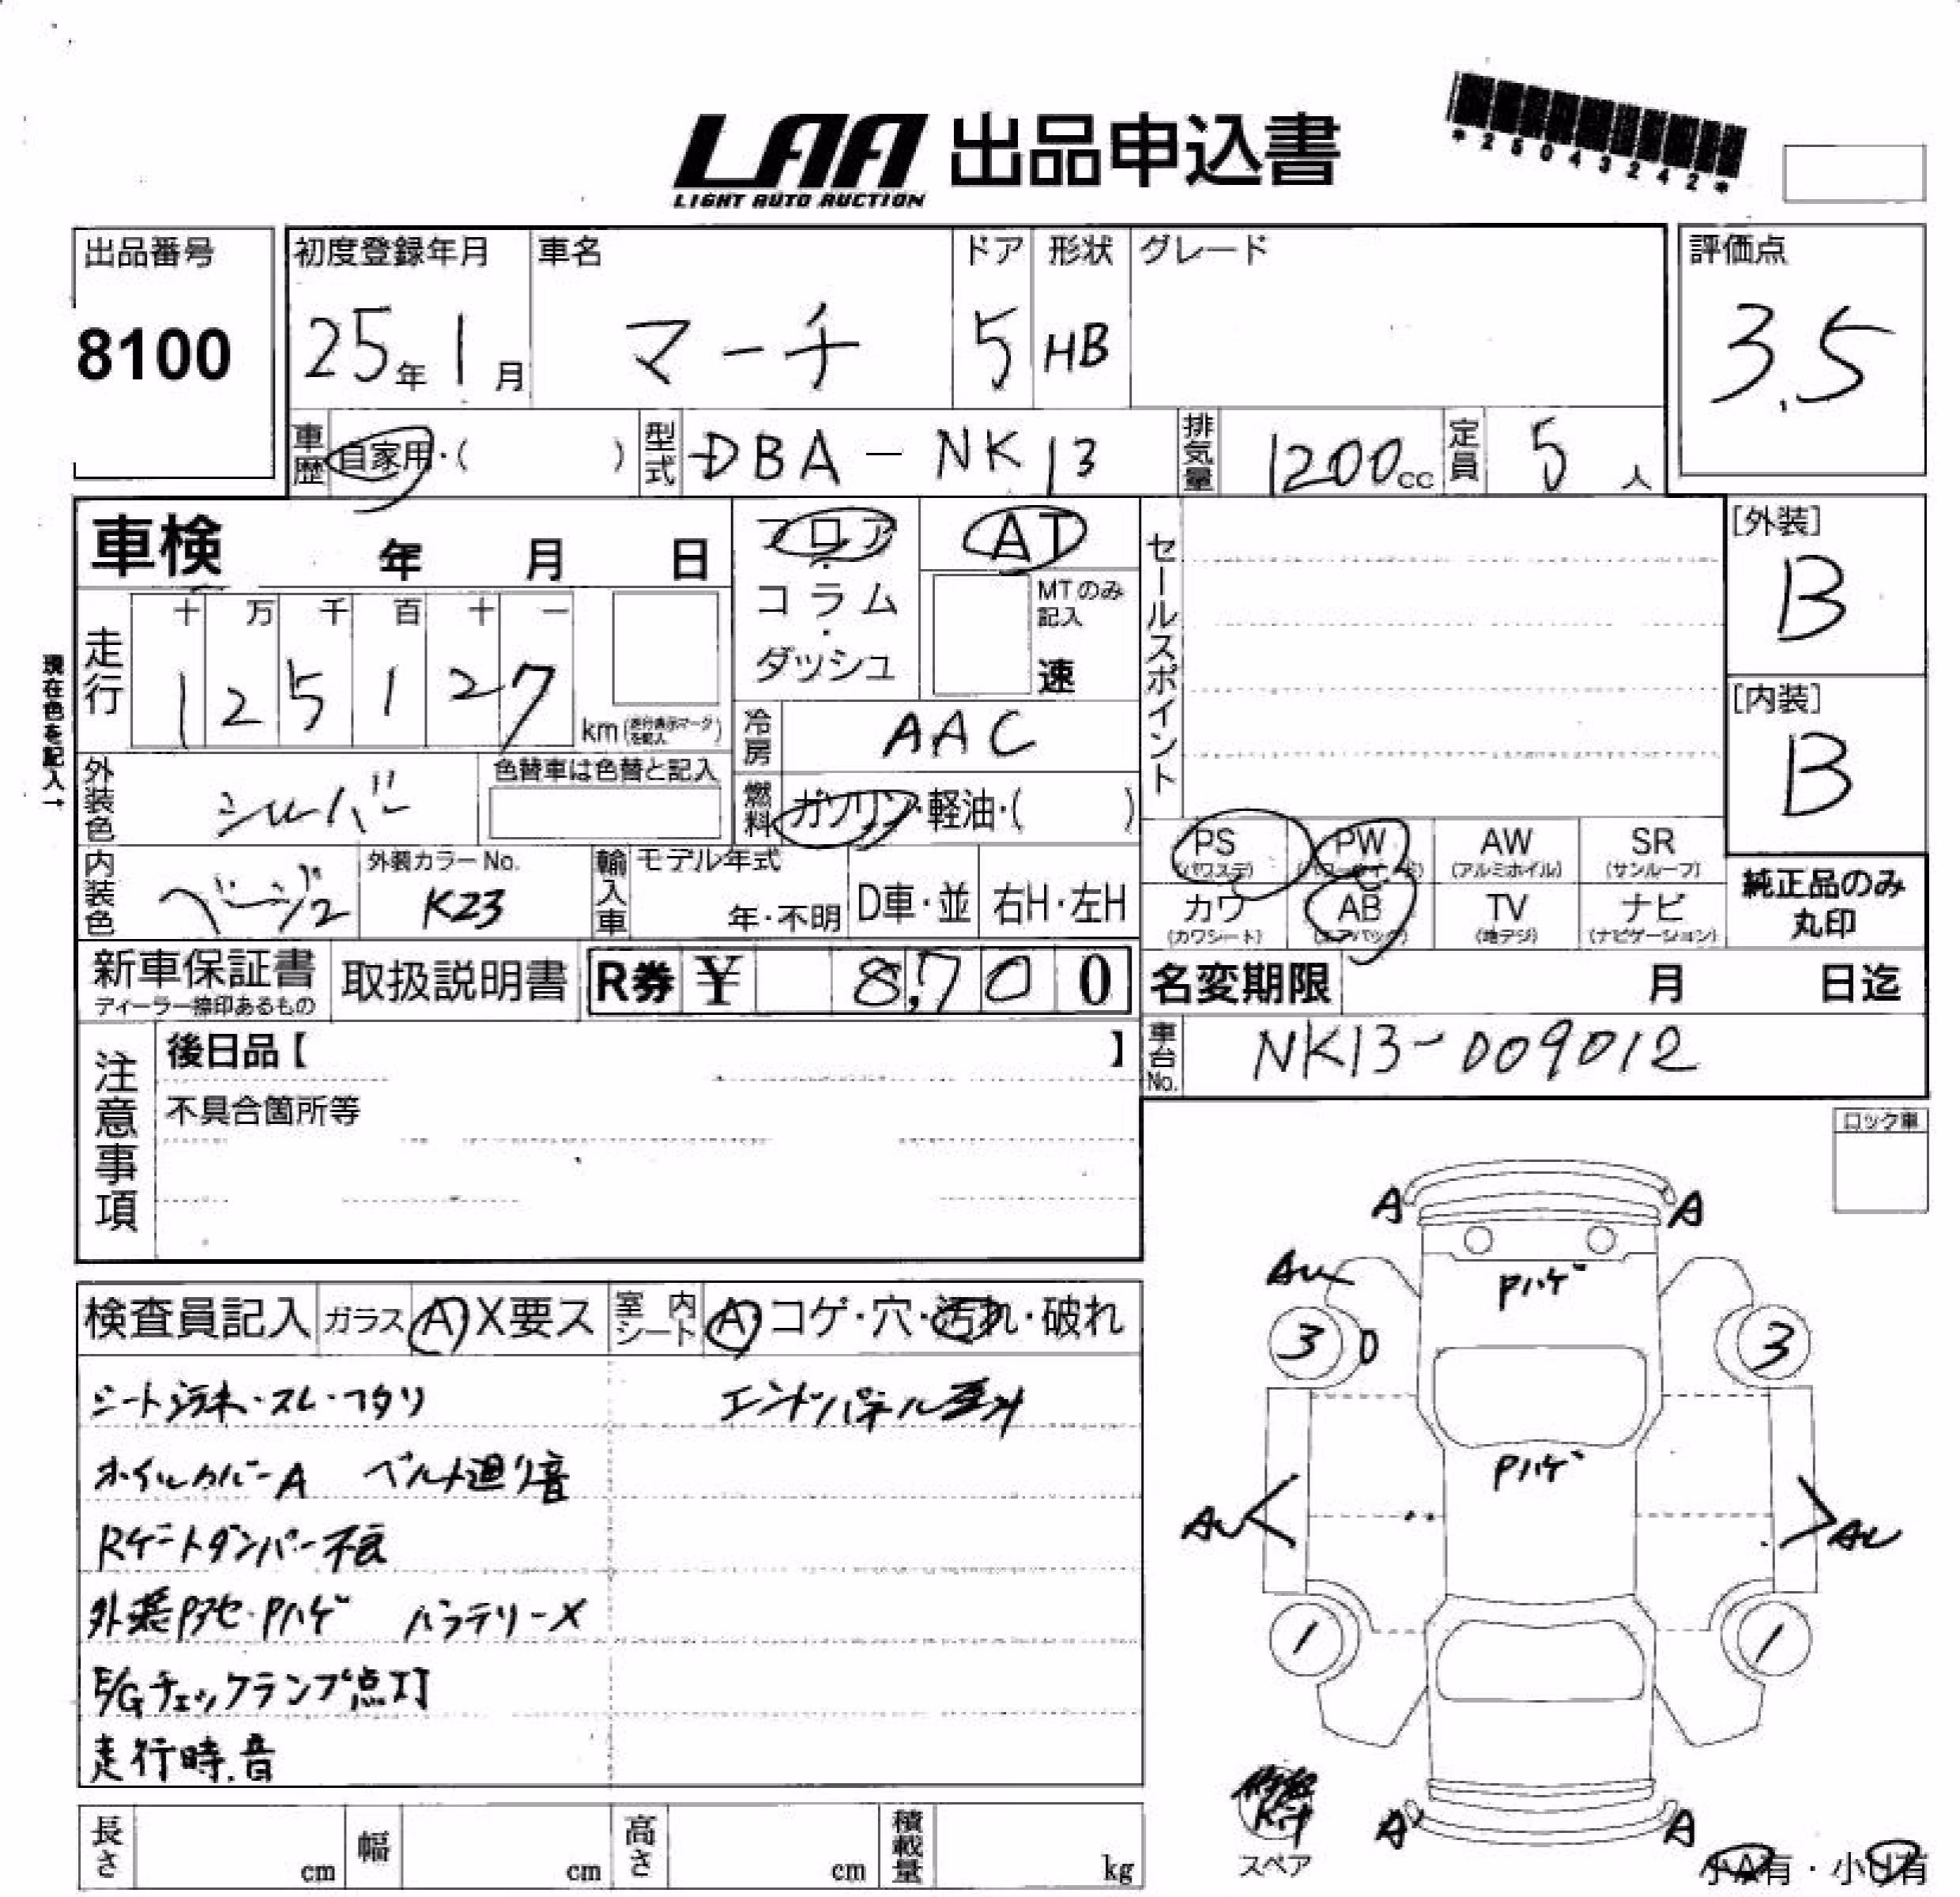 LAA 出品申込書
LIGHT AUTO AUCTION
*25043242*
出品番号 初度登録年月 車名 ドア 形状 グレード 評価点
8100 25年1月 マーチ 5 HB 3.5
車歴 自家用・( ) 型式 DBA-NK13 排気量 1200cc 定員 5人
車検 年 月 日
フロア・コラム・ダッシュ
AT
MTのみ記入 速
セールスポイント
[外装]
B
[内装]
B
現在色を記入→
走行 十 万 千 百 十 一
1 2 5 1 2 7 km(走行表示マークを記入)
冷房 AAC
外装色 シルバー 色替車は色替と記入
燃料 ガソリン・軽油・( )
内装色 ベージュ 外装カラーNo. K23
輸入車 モデル年式 年・不明 D車・並 右H・左H
PS (パワステ) PW (パワーウインド) AW (アルミホイル) SR (サンルーフ)
カワ (カワシート) AB (エアバック) TV (地デジ) ナビ (ナビゲーション)
純正品のみ丸印
新車保証書 ディーラー捺印あるもの 取扱説明書 R券 ¥ 8,700
名変期限 月 日迄
車台No. NK13-009012
注意事項
後日品【 】
不具合箇所等
ロック車
検査員記入 ガラス A X要ス 室内シート A・コゲ・穴・汚れ・破れ
シート汚れ・スレ・ヘタリ エンドパネル歪み
ホイルカバーA ベルト廻り音
Rゲートダンパー不良
外装Pアセ・Pハゲ バッテリーX
E/Gチェックランプ点灯
走行時.音
A A
AU Pハゲ
3 0 3
Pハゲ
AU AU
1 1
スペア
A A
小A有・小U有
長さ cm 幅 cm 高さ cm 積載量 kg